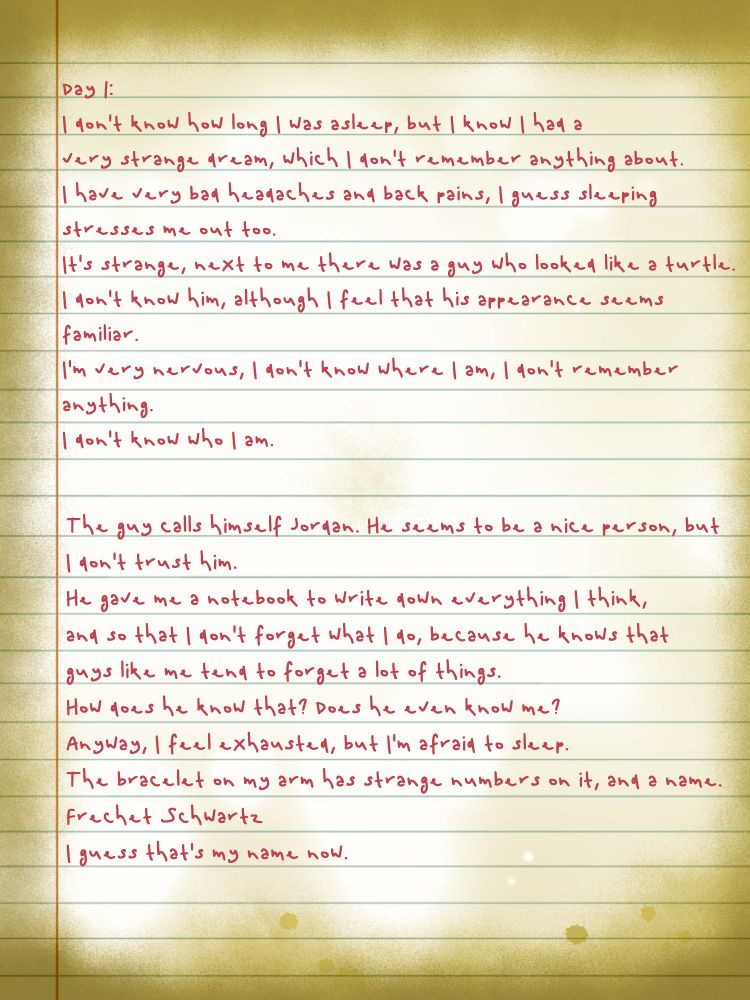 Day 1:
I don't know how long I was asleep, but I know I had a
very strange dream, which I don't remember anything about.
I have very bad headaches and back pains, I guess sleeping
stresses me out too.
It's strange, next to me there was a guy who looked like a turtle.
I don't know him, although I feel that his appearance seems
familiar.
I'm very nervous, I don't know where I am, I don't remember
anything.
I don't know who I am.
The guy calls himself Jordan. He seems to be a nice person, but
I don't trust him.
He gave me a notebook to write down everything I think,
and so that I don't forget what I do, because he knows that
guys like me tend to forget a lot of things.
How does he know that? Does he even know me?
Anyway, I feel exhausted, but I'm afraid to sleep.
The bracelet on my arm has strange numbers on it, and a name.
Frechet Schwartz
I guess that's my name now.